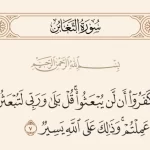 سُورَةُ التَّغَابُنِ
بِسْمِ اللَّهِ الرَّحْمَٰنِ الرَّحِيمِ
كَفَرُوٓا۟ أَن لَّن يُبْعَثُوا۟ ۚ قُلْ بَلَىٰ وَرَبِّى لَتُبْعَثُنَّ
عَمِلْتُمْ ۚ وَذَٰلِكَ عَلَى ٱللَّهِ يَسِيرٌ ٧